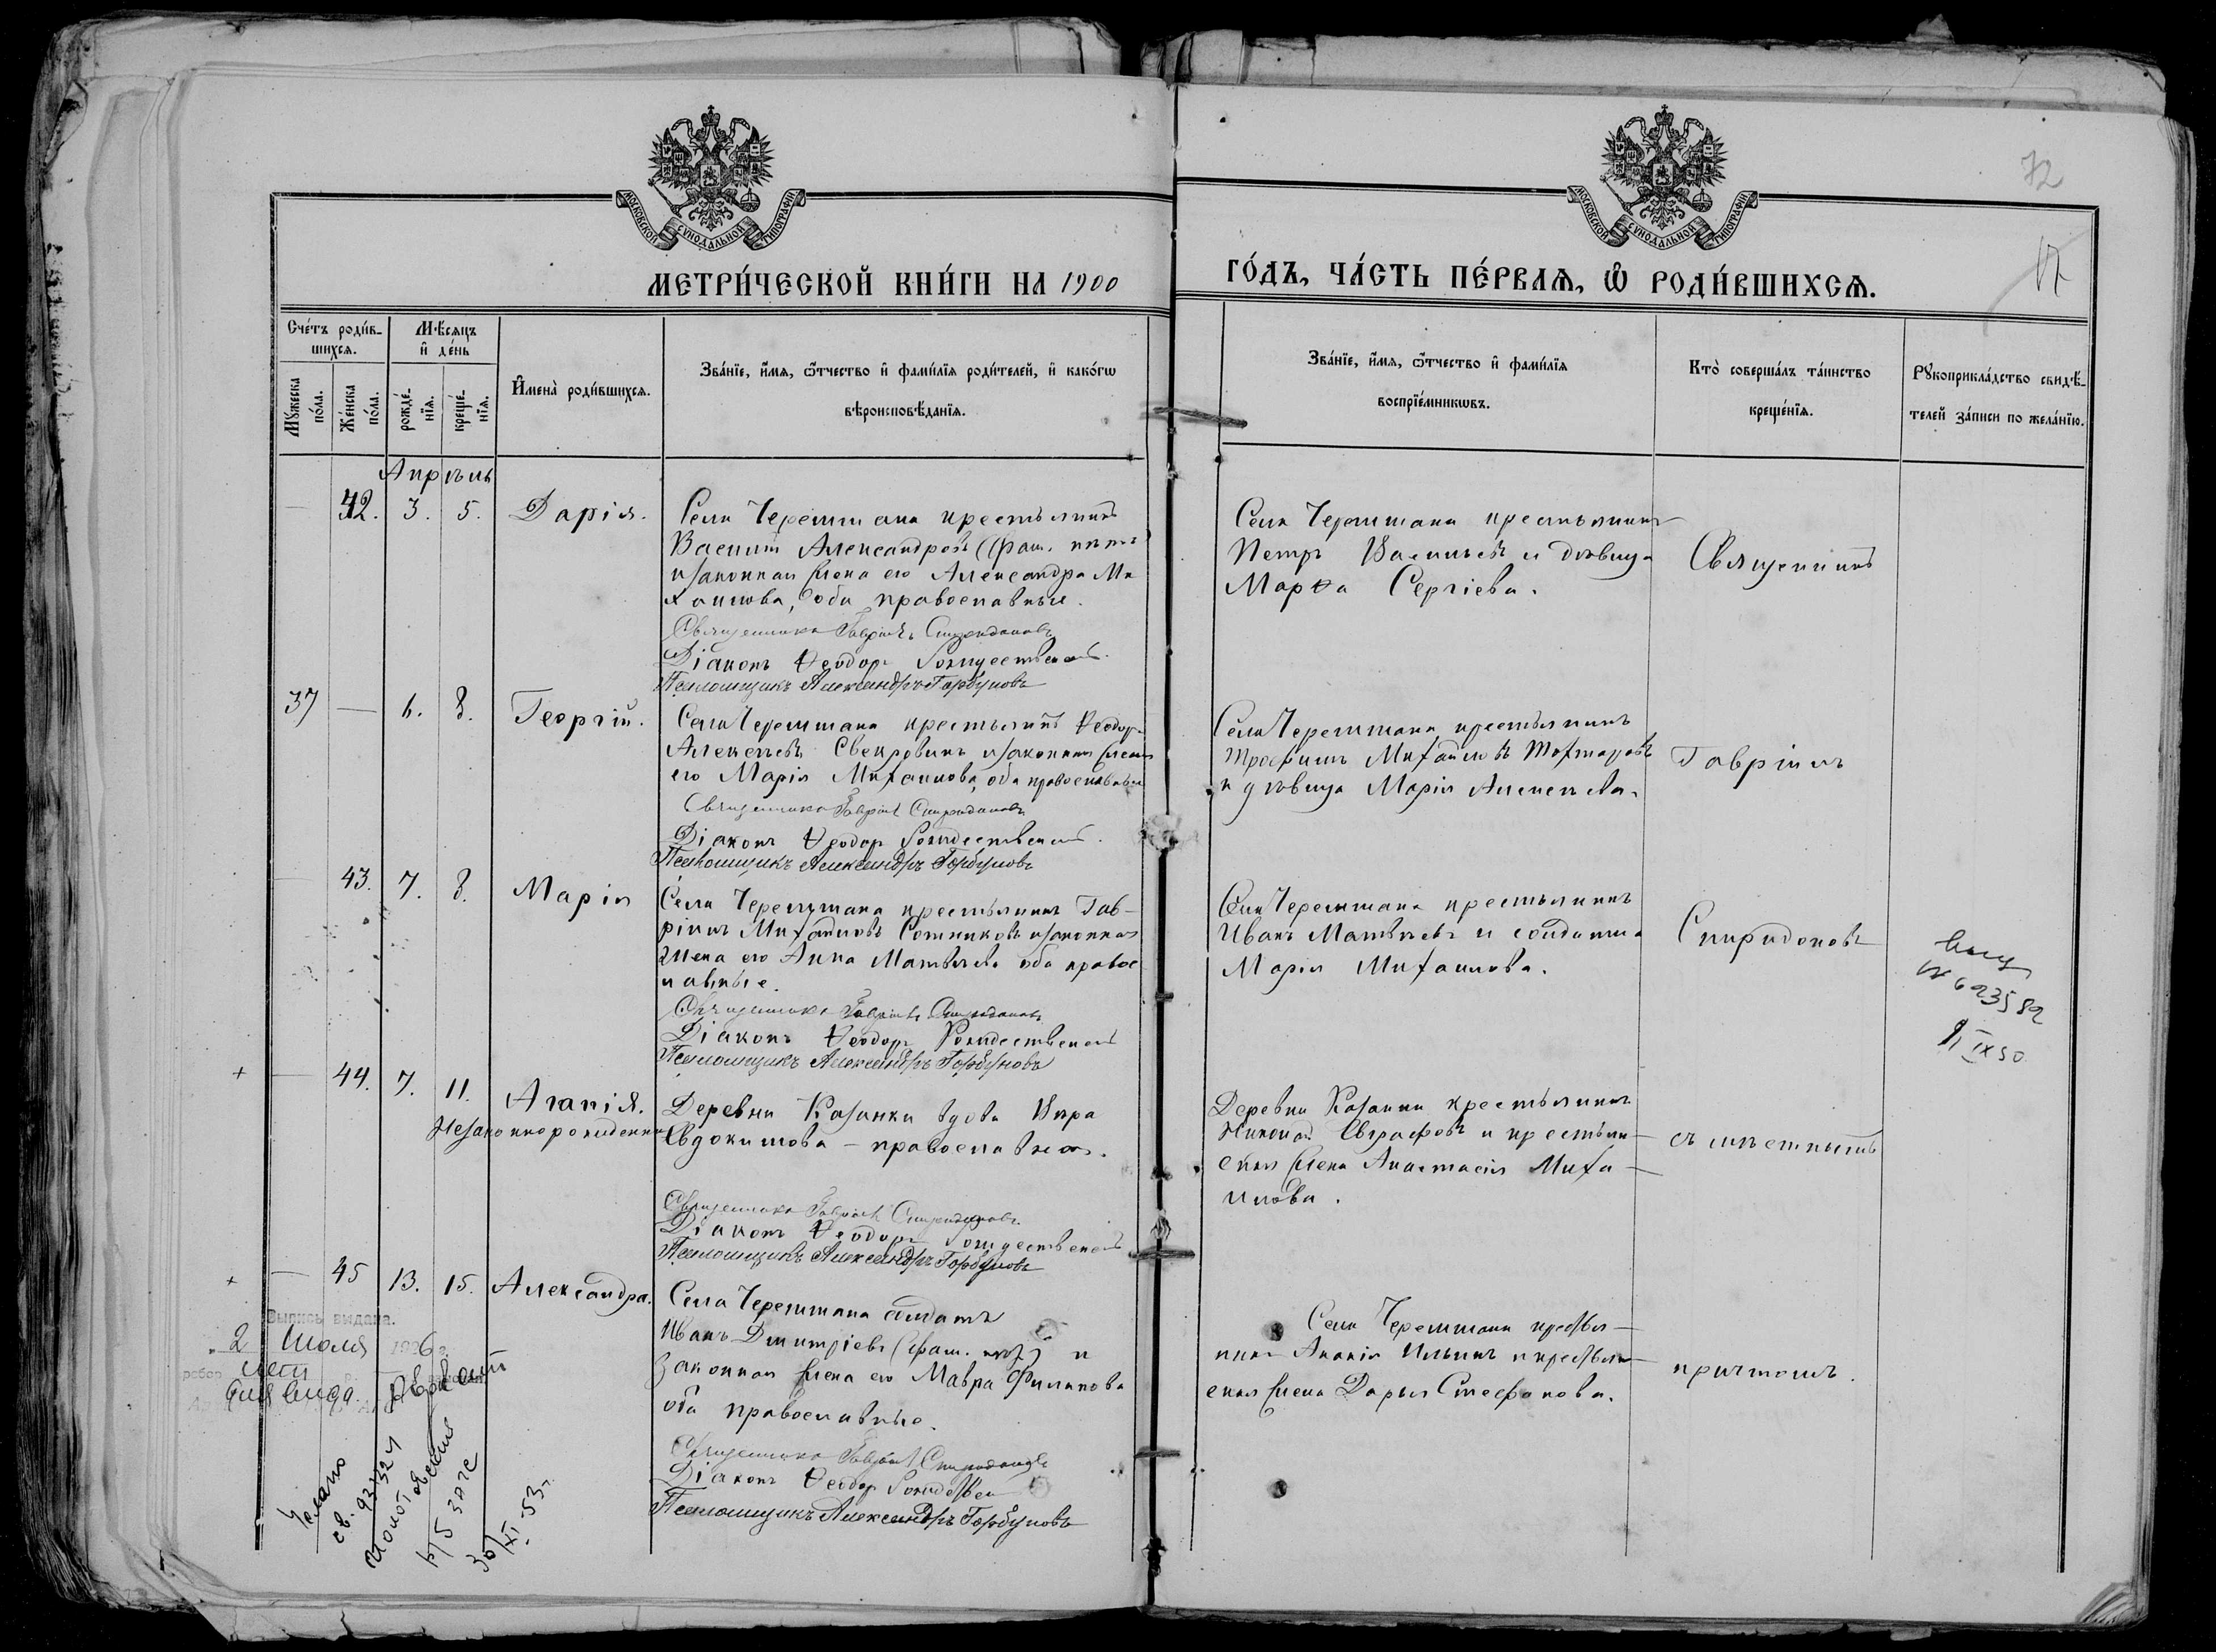 72
17
МОСКОВСКОЙ СѴНОДАЛЬНОЙ ТИПОГРАФІИ
МОСКОВСКОЙ СѴНОДАЛЬНОЙ ТИПОГРАФІИ
МЕТРИ́ЧЕСКОЙ КНИ́ГИ НА 1900
ГО́ДЪ, ЧА́СТЬ ПЕ́РВАѦ, Ѡ҆ РОДИ́ВШИХСѦ.
Сче́тъ роди́в-
шихсѧ.
Мꙋжеска
по́ла.
Же́нска
по́ла.
Мѣ́сѧцъ
и҆ де́нь
рожде́-
нїѧ.
креще́-
нїѧ.
И҆мена̀ роди́вшихсѧ.
Зва́нїе, и҆́мѧ, ѻ҆́тчество и҆ фами́лїѧ роди́телей, и҆ како́гѡ
вѣроисповѣ́данїѧ.
Зва́нїе, и҆́мѧ, ѻ҆́тчество и҆ фами́лїѧ
воспрїе́мникѡвъ.
Кто̀ соверша́лъ та́инство
креще́нїѧ.
Рꙋкоприкла́дство свидѣ́-
телей за́писи по жела́нїю.
Апрѣль
— 42. 3. 5. Дарія.
Села Черемшана крестьянинъ
Василій Александровъ (фам. нѣтъ)
и законная жена его Александра Ми
хаилова, оба православные.
Священникъ Гавріилъ Спиридоновъ
Діаконъ Ѳеодоръ Рождественскій
Псаломщикъ Александръ Горбуновъ
Села Черемшана крестьянинъ
Петръ Васильевъ и дѣвица
Марѳа Сергіева.
Священникъ
37 — 6. 8. Георгій.
Села Черемшана крестьянинъ Ѳеодоръ
Алексѣевъ Свекровинъ и законная жена
его Марія Михаилова, оба православные
Священникъ Гавріилъ Спиридоновъ
Діаконъ Ѳеодоръ Рождественскій
Псаломщикъ Александръ Горбуновъ
Села Черемшана крестьянинъ
Трофимъ Михайловъ
и дѣвица Марія Алексѣева.
Гавріилъ
— 43. 7. 8. Марія
Села Черемшана крестьянинъ Гав-
ріилъ Михаиловъ Сотниковъ и законная
жена его Анна Матвѣева оба правос
лавные.
Священникъ Гавріилъ Спиридоновъ
Діаконъ Ѳеодоръ Рождественскій
Псаломщикъ Александръ Горбуновъ
Села Черемшана крестьянинъ
Иванъ Матвѣевъ и солдатка
Марія Михаилова.
Спиридоновъ
№ 623582
IX 50
+ — 44. 7. 11. Агапія.
Незаконнорожденная
Деревни Казанки вдова
Евдокимова — православная.
Священникъ Гавріилъ Спиридоновъ
Діаконъ Ѳеодоръ Рождественскій
Псаломщикъ Александръ Горбуновъ
Деревни Казанки крестьянинъ
Николай Евграфовъ и крестьян-
ская жена Анастасія Миха-
илова.
съ мѣстнымъ
+ — 45 13. 15. Александра.
Села Черемшана солдатъ
Иванъ Димитріевъ (фам. нѣтъ) и
законная жена его Мавра Филипова
оба православные.
Священникъ Гавріилъ Спиридоновъ
Діаконъ Ѳеодоръ Рождествен
Псаломщикъ Александръ Горбуновъ
Села Черемшана крестья-
нинъ Ананія Ильинъ и крестьян-
ская жена Дарья Стефанова.
причтомъ.
Выпись выдана.
2 Июля 1926 г.
св. 93132
р/б загс
30/XI-53 г.